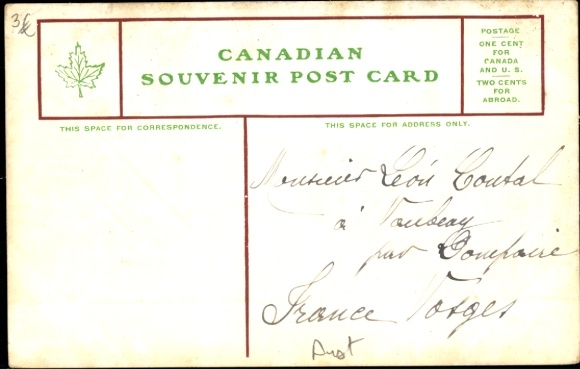 CANADIAN
SOUVENIR POST CARD
POSTAGE
ONE CENT
FOR
CANADA
AND U. S.
TWO CENTS
FOR
ABROAD.
THIS SPACE FOR CORRESPONDENCE.
THIS SPACE FOR ADDRESS ONLY.
Monsieur Léon Coutal
à
par Dompaire
France Vosges